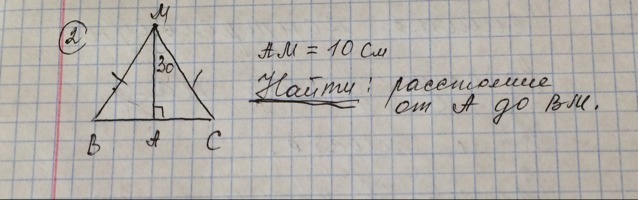 2
M
30
B
A
C
AM = 10 см
Найти: расстояние
от A до BM.